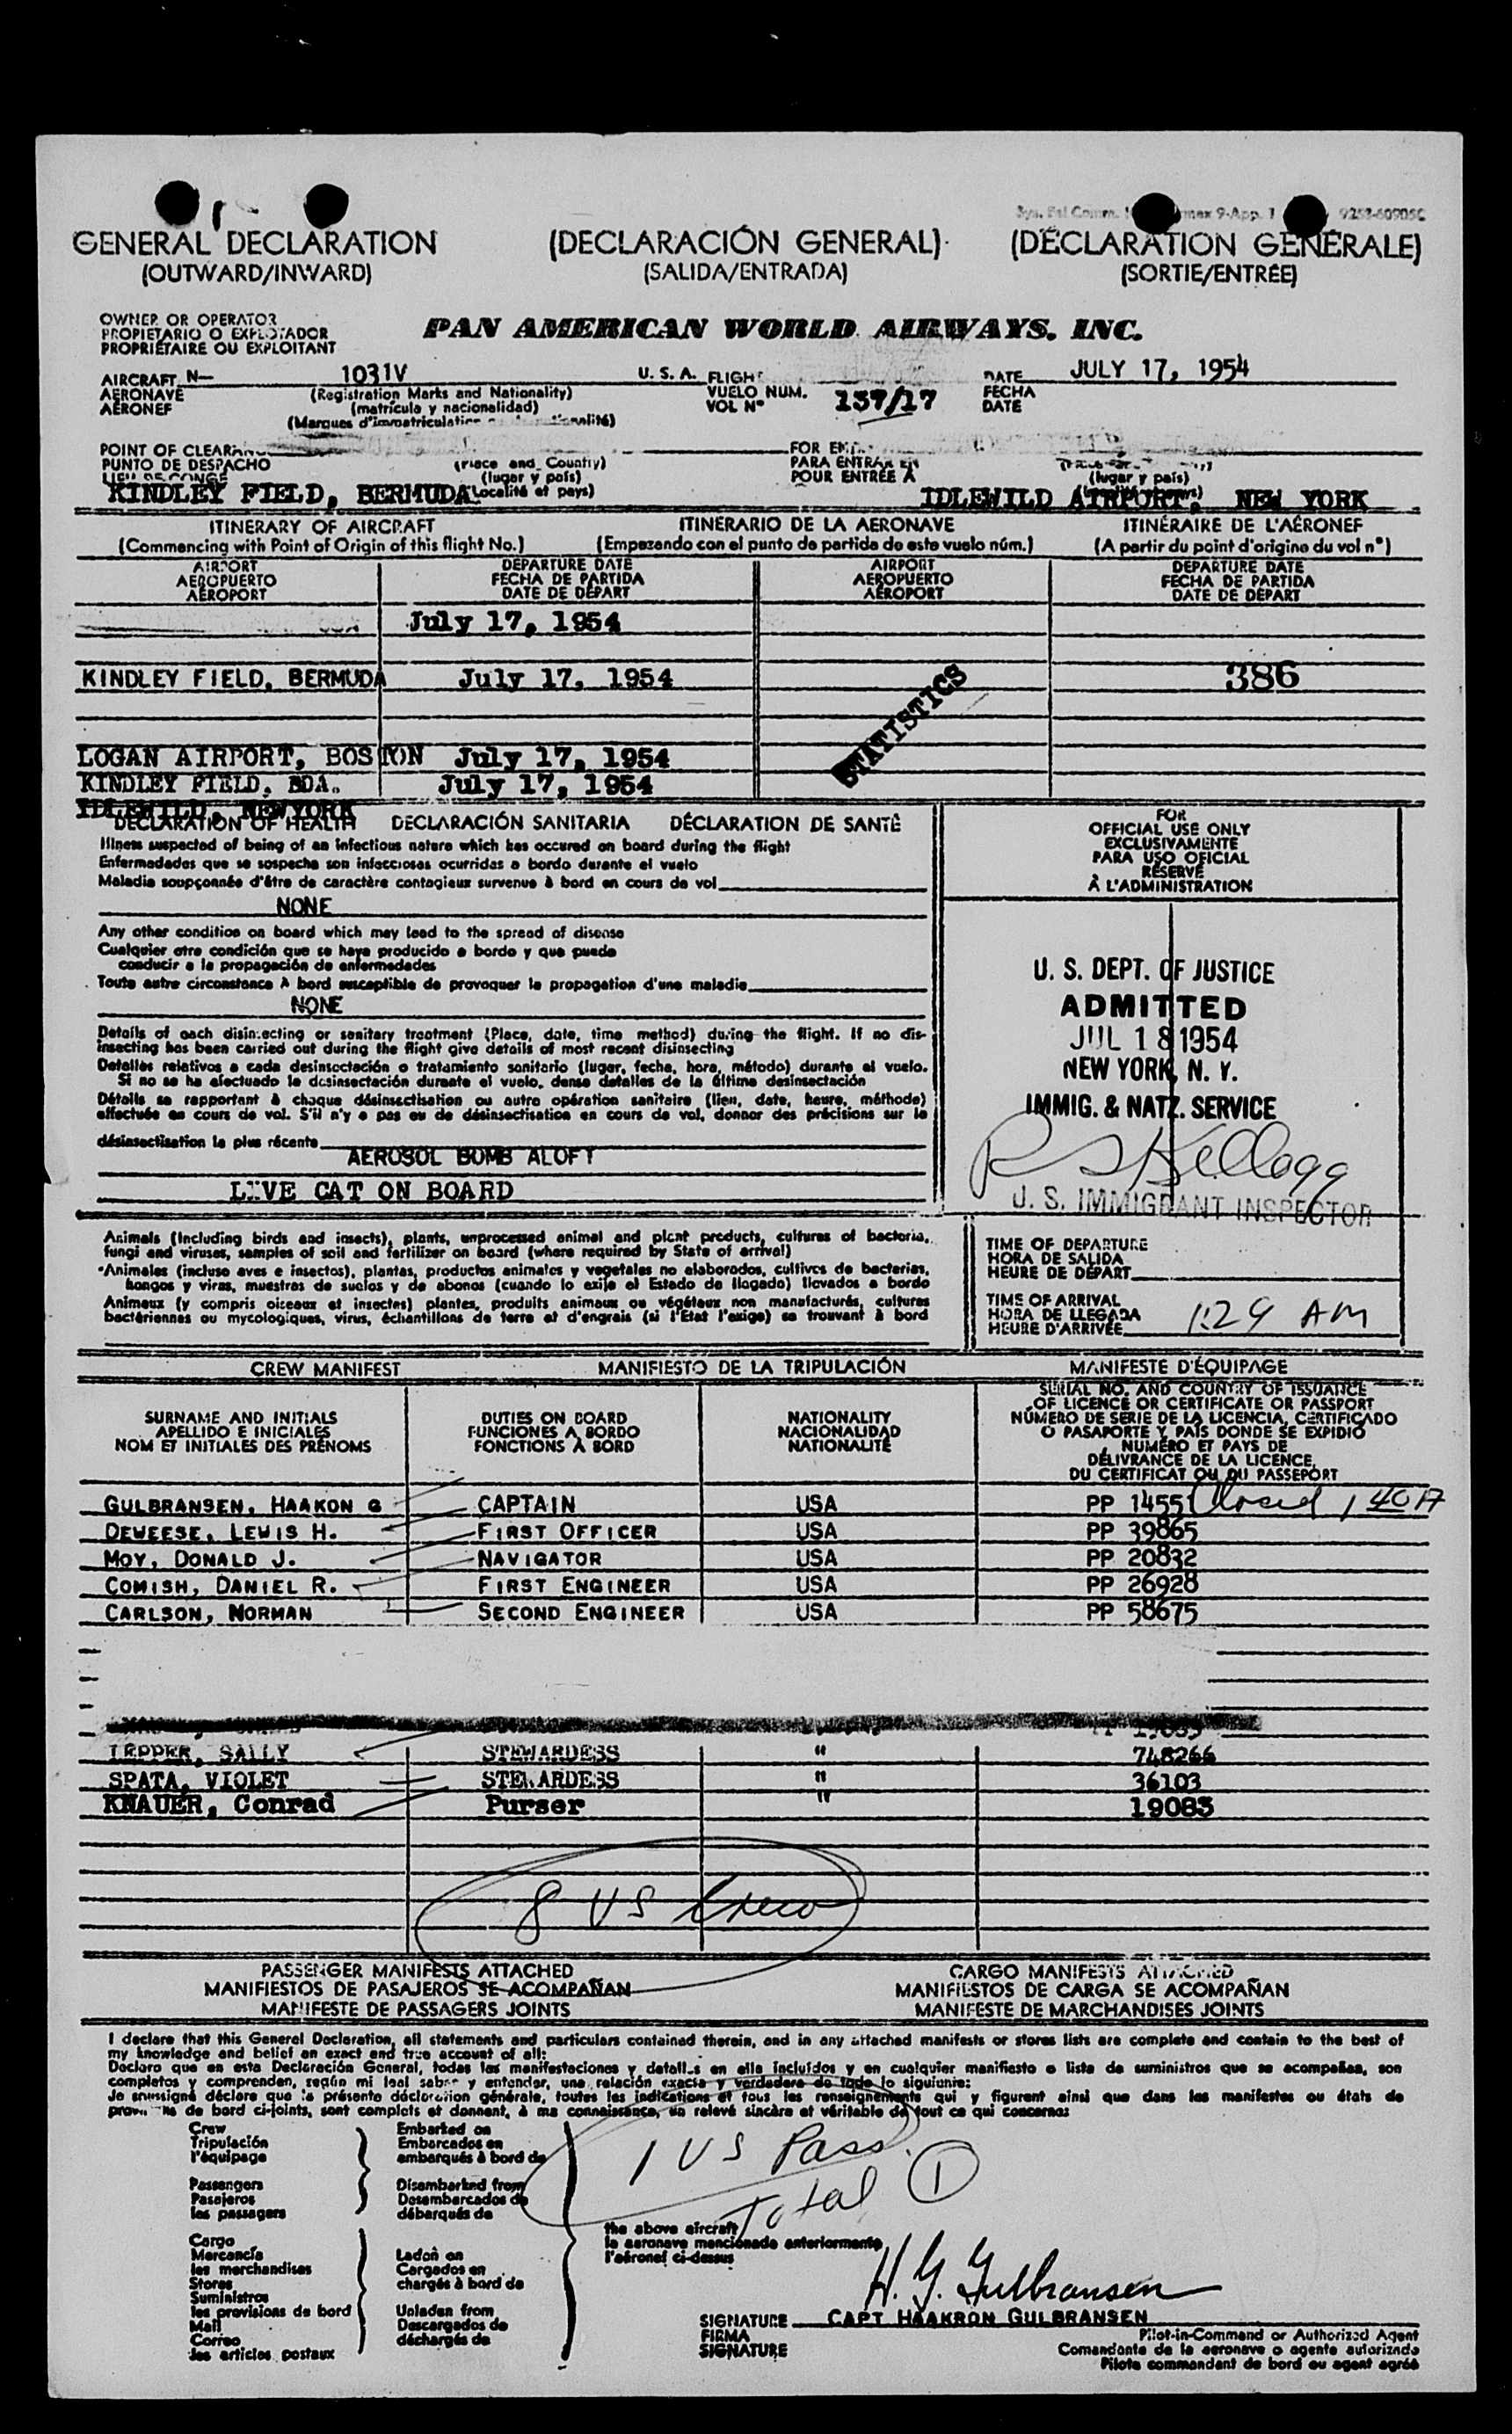 GENERAL DECLARATION (DECLARACIÓN GENERAL) (DÉCLARATION GÉNÉRALE)
(OUTWARD/INWARD) (SALIDA/ENTRADA) (SORTIE/ENTRÉE)
OWNER OR OPERATOR
PROPIETARIO O EXPLOTADOR
PROPRIÉTAIRE OU EXPLOITANT
PAN AMERICAN WORLD AIRWAYS, INC.
AIRCRAFT N— 1031V U. S. A. FLIGHT DATE JULY 17, 1954
AERONAVE (Registration Marks and Nationality) VUELO NUM. 137/17 FECHA
AÉRONEF (matrícula y nacionalidad) VOL Nº DATE
(Marques d'immatriculation
POINT OF CLEARANCE FOR
PUNTO DE DESPACHO (Place and Country) PARA ENTRAR EN
(lugar y país) POUR ENTRÉE À (lugar y país)
KINDLEY FIELD, BERMUDA (Localité et pays) IDLEWILD AIRPORT, NEW YORK
ITINERARY OF AIRCRAFT ITINERARIO DE LA AERONAVE ITINÉRAIRE DE L'AÉRONEF
(Commencing with Point of Origin of this flight No.) (Empezando con el punto de partida de este vuelo núm.) (A partir du point d'origine du vol nº)
AIRPORT DEPARTURE DATE AIRPORT DEPARTURE DATE
AEROPUERTO FECHA DE PARTIDA AEROPUERTO FECHA DE PARTIDA
AÉROPORT DATE DE DÉPART AÉROPORT DATE DE DÉPART
July 17, 1954
KINDLEY FIELD, BERMUDA July 17, 1954 386
STATISTICS
LOGAN AIRPORT, BOSTON July 17, 1954
KINDLEY FIELD, BDA. July 17, 1954
IDLEWILD, NEWYORK
DECLARATION OF HEALTH DECLARACIÓN SANITARIA DÉCLARATION DE SANTÉ
Illness suspected of being of an infectious nature which has occured on board during the flight
Enfermedades que se sospecha son infecciosas ocurridas a bordo durante el vuelo
Maladie soupçonnée d'être de caractère contagieux survenue à bord en cours de vol
NONE
Any other condition on board which may lead to the spread of disease
Cualquier otra condición que se haya producido a bordo y que pueda
conducir a la propagación de enfermedades
Toute autre circonstance à bord susceptible de provoquer la propagation d'une maladie
NONE
Details of each disinsecting or sanitary treatment (Place, date, time method) during the flight. If no dis-
insecting has been carried out during the flight give details of most recent disinsecting
Detalles relativos a cada desinsectación o tratamiento sanitario (lugar, fecha, hora, método) durante el vuelo.
Si no se ha efectuado la desinsectación durante el vuelo, dense detalles de la última desinsectación
Détails se rapportant à chaque désinsectisation ou autre opération sanitaire (lieu, date, heure, méthode)
effectuée en cours de vol. S'il n'y a pas eu de désinsectisation en cours de vol, donner des précisions sur la
désinsectisation la plus récente
AEROSOL BOMB ALOFT
LIVE CAT ON BOARD
FOR
OFFICIAL USE ONLY
EXCLUSIVAMENTE
PARA USO OFICIAL
RÉSERVÉ
À L'ADMINISTRATION
U. S. DEPT. OF JUSTICE
ADMITTED
JUL 18 1954
NEW YORK, N. Y.
IMMIG. & NATZ. SERVICE
R S Kellogg
U. S. IMMIGRANT INSPECTOR
Animals (Including birds and insects), plants, unprocessed animal and plant products, cultures of bacteria,
fungi and viruses, samples of soil and fertilizer on board (where required by State of arrival)
Animales (incluso aves e insectos), plantas, productos animales y vegetales no elaborados, cultivos de bacterias,
hongos y virus, muestras de suelos y de abonos (cuando lo exija el Estado de llegada) llevados a bordo
Animaux (y compris oiseaux et insectes) plantes, produits animaux ou végétaux non manufacturés, cultures
bactériennes ou mycologiques, virus, échantillons de terre et d'engrais (si l'Etat l'exige) se trouvant à bord
TIME OF DEPARTURE
HORA DE SALIDA
HEURE DE DÉPART
TIME OF ARRIVAL
HORA DE LLEGADA
HEURE D'ARRIVÉE 1:29 AM
CREW MANIFEST MANIFIESTO DE LA TRIPULACIÓN MANIFESTE D'ÉQUIPAGE
SURNAME AND INITIALS
APELLIDO E INICIALES
NOM ET INITIALES DES PRÉNOMS
DUTIES ON BOARD
FUNCIONES A BORDO
FONCTIONS À BORD
NATIONALITY
NACIONALIDAD
NATIONALITÉ
SERIAL NO. AND COUNTRY OF ISSUANCE
OF LICENCE OR CERTIFICATE OR PASSPORT
NÚMERO DE SERIE DE LA LICENCIA, CERTIFICADO
O PASAPORTE Y PAÍS DONDE SE EXPIDIÓ
NUMÉRO ET PAYS DE
DÉLIVRANCE DE LA LICENCE,
DU CERTIFICAT OU DU PASSEPORT
GULBRANSEN, HAAKON G CAPTAIN USA PP 1455 Closed 1 40 A
DEWEESE, LEWIS H. FIRST OFFICER USA PP 39865
MOY, DONALD J. NAVIGATOR USA PP 20832
COMISH, DANIEL R. FIRST ENGINEER USA PP 26928
CARLSON, NORMAN SECOND ENGINEER USA PP 58675
LEPPER, SALLY STEWARDESS " 748266
SPATA, VIOLET STEWARDESS " 36103
KNAUER, Conrad Purser " 19083
8 US Crew
PASSENGER MANIFESTS ATTACHED CARGO MANIFESTS ATTACHED
MANIFIESTOS DE PASAJEROS SE ACOMPAÑAN MANIFIESTOS DE CARGA SE ACOMPAÑAN
MANIFESTE DE PASSAGERS JOINTS MANIFESTE DE MARCHANDISES JOINTS
I declare that this General Declaration, all statements and particulars contained therein, and in any attached manifests or stores lists are complete and contain to the best of
my knowledge and belief an exact and true account of all:
Declaro que en esta Declaración General, todas las manifestaciones y detalles en ella incluídos y en cualquier manifiesto o lista de suministros que se acompañan, son
completos y comprenden, según mi leal saber y entender, una relación exacta y verdadera de todo lo siguiente:
Je soussigné déclare que la présente déclaration générale, toutes les indications et tous les renseignements qui y figurent ainsi que dans les manifestes ou états de
provisions de bord ci-joints, sont complets et donnent, à ma connaissance, un relevé sincère et véritable de tout ce qui concerne:
Crew
Tripulación
l'équipage
Passengers
Pasajeros
les passagers
Cargo
Mercancía
les merchandises
Stores
Suministros
les provisions de bord
Mail
Correo
les articles postaux
Embarked on
Embarcados en
embarqués à bord de
Disembarked from
Desembarcados de
débarqués de
Laden on
Cargados en
chargés à bord de
Unladen from
Descargados de
déchargés de
1 US Pass.
Total 1
the above aircraft
la aeronave mencionada anteriormente
l'aéronef ci-dessus
H. G. Gulbransen
SIGNATURE CAPT HAAKRON GULBRANSEN
FIRMA Pilot-in-Command or Authorized Agent
SIGNATURE Comandante de la aeronave o agente autorizado
Pilote commandant de bord ou agent agréé